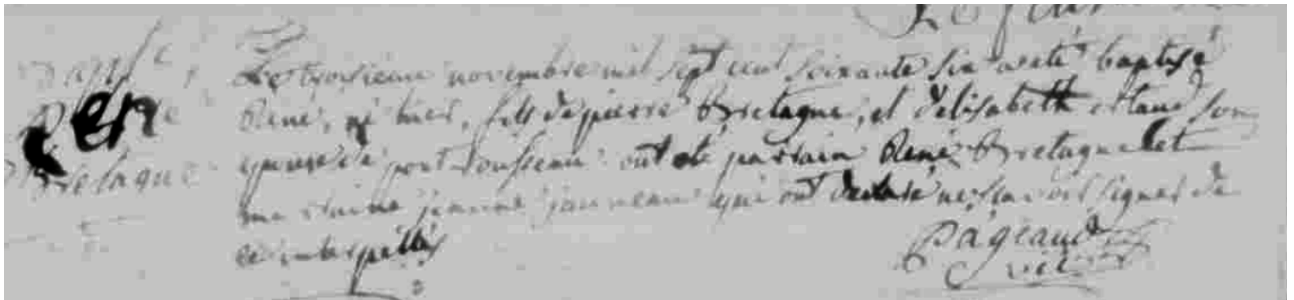 Bapt.
René
Bretagne
Le troisieme novembre mil sept cent soixante six a eté baptisé
René, né hier, fils de pierre Bretagne, et d'elisabeth son
epouse de pont rousseau ont eté parrain René Bretagne et
marraine jeanne janneau qui ont declaré ne sçavoir signer de
ce interpellés
Pageaud
vic